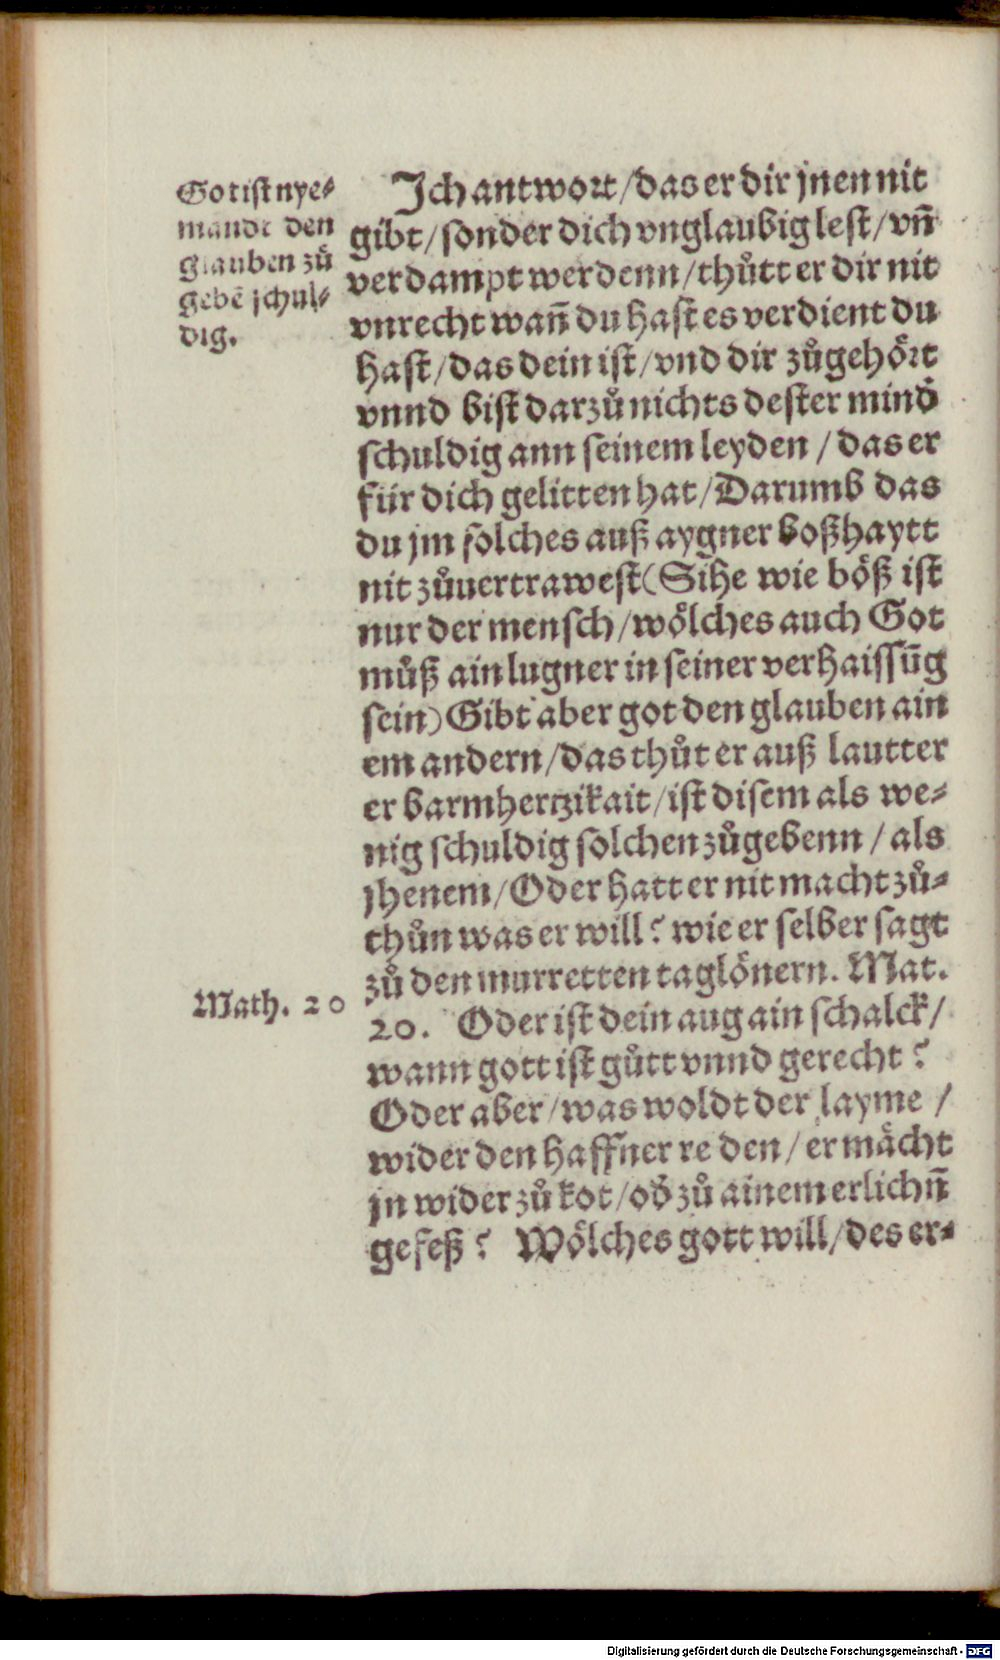 Got ist nye⸗
mandt den
glauben zů
gebē schul⸗
dig.
Ich antwort / das er dir jnen nit
gibt / sonder dich vnglaubig lest / vn̄
verdampt werdenn / thůtt er dir nit
vnrecht wan̄ du hast es verdient du
hast / das dein ist / vnd dir zůgehört
vnnd bist darzů nichts dester mind̕
schuldig ann seinem leyden / das er
für dich gelitten hat / Darumb das
du jm solches auß aygner boßhaytt
nit zůuertrawest (Sihe wie böß ist
nur der mensch / wölches auch Got
můß ain lugner in seiner verhaissūg
sein) Gibt aber got den glauben ain
em andern / das thůt er auß lautter
er barmhertzikait / ist disem als we⸗
nig schuldig solchen zůgebenn / als
jhenem / Oder hatt er nit macht zů⸗
thůn was er will? wie er selber sagt
zů den murretten taglönern. Mat.
20. Oder ist dein aug ain schalck /
wann gott ist gůtt vnnd gerecht?
Oder aber / was woldt der layme /
wider den haffner re den / er mächt
jn wider zů kot / od̕ zů ainem erlichn̄
gefeß? Wölches gott will / des er⸗
Math. 20
Digitalisierung gefördert durch die Deutsche Forschungsgemeinschaft - DFG